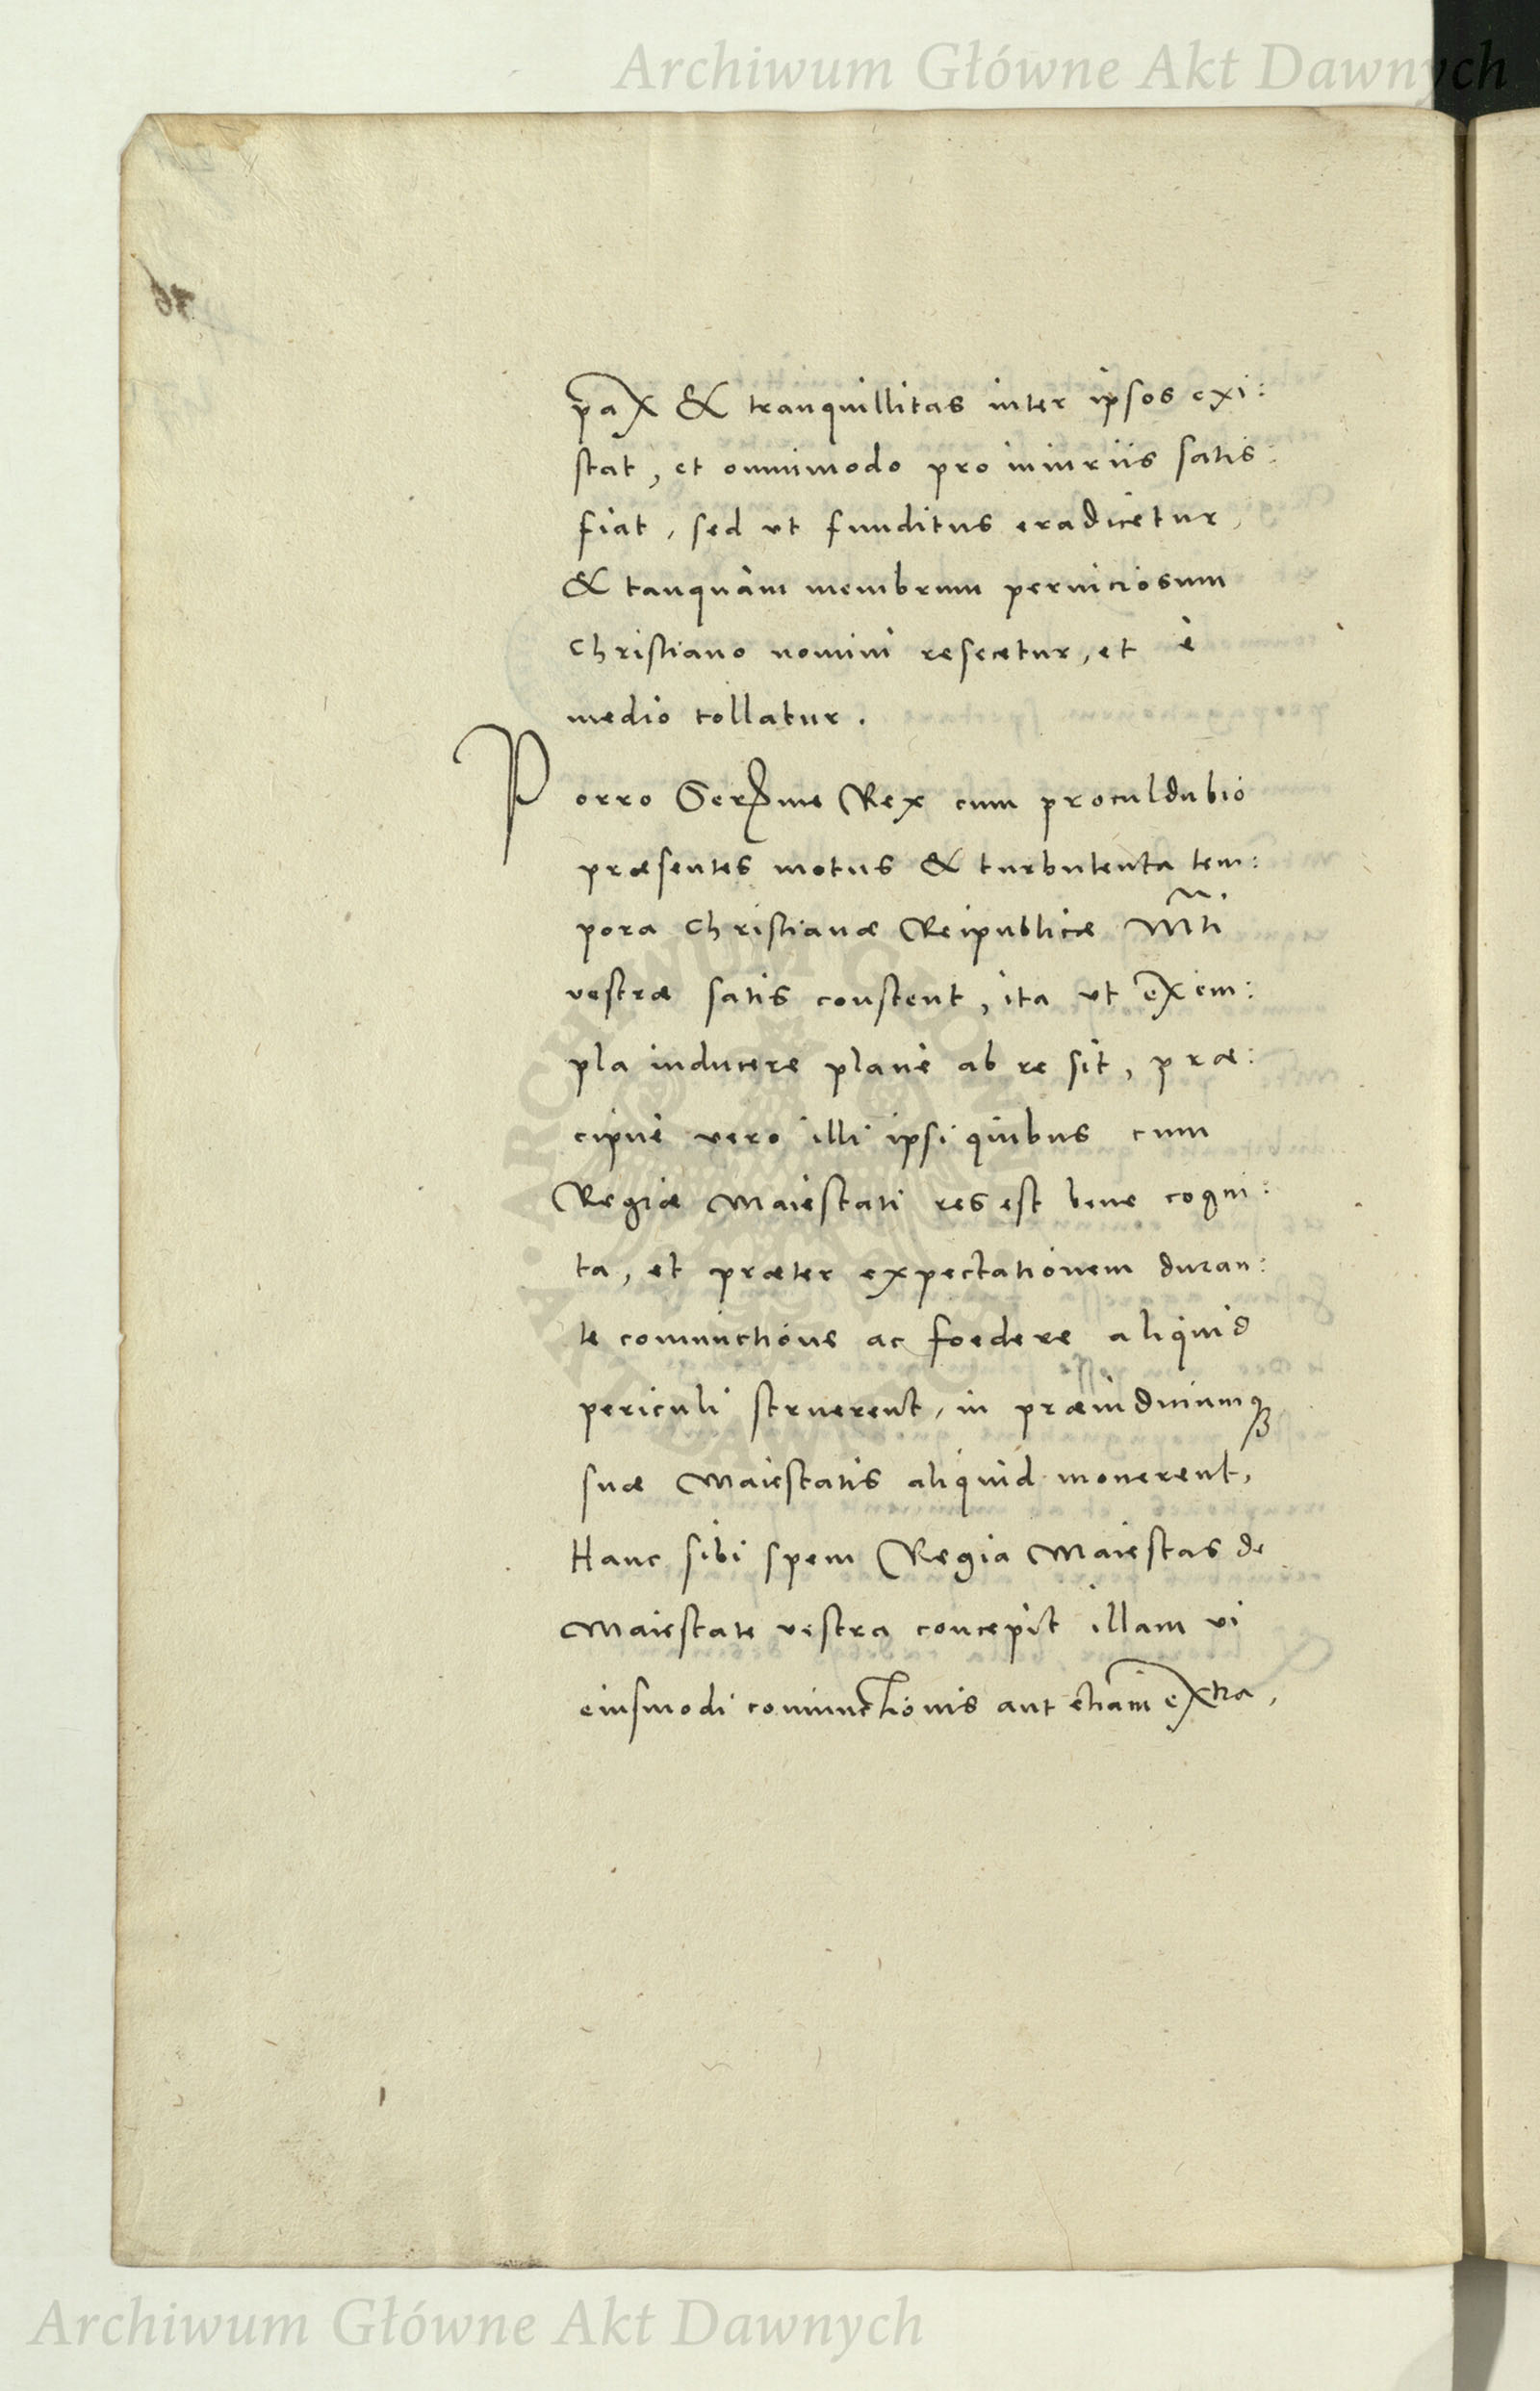 Archiwum Główne Akt Dawnych
pax & tranquillitas inter ipsos exi:
stat, et omnimodo pro iniuriis satis:
fiat, sed ut funditus eradicetur,
& tanquam membrum perniciosum
Christiano nomini resecetur, et è
medio tollatur.
Porro Serme Rex cum proculdubio
præsentes motus & turbulenta tem:
pora Christianæ Reipublicæ Mti
vestræ satis constent, ita ut exem:
pla inducere planè ab re sit, præ:
cipuè vero illi ipsi quibus cum
Regiæ Maiestati res est bene cogni:
ta, et præter expectationem duran:
te coniunctione ac foedere aliquid
periculi struerent, in præiudiciumq
suæ Maiestatis aliquid monerent,
Hanc sibi spem Regia Maiestas de
Maiestate vestra concepit illam vi
eiusmodi coniunctionis aut etiam extra,
ARCHIWUM GŁÓWNE AKT DAWNYCH
Archiwum Główne Akt Dawnych